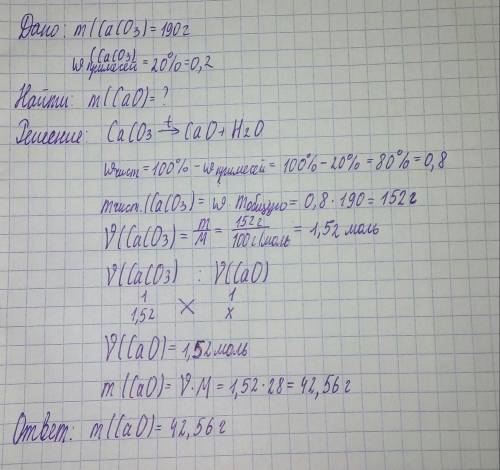 Дано: m(CaCO3)=190г
ω примесей (CaCO3)=20%=0,2
Найти: m(CaO)=?
Решение: CaCO3 t→ CaO+H2O
ωчист=100%-ωпримесей=100%-20%=80%=0,8
mчист.(CaCO3)=ω·mобщую=0,8·190=152г
ν(CaCO3)=m/M=152г/100г/моль=1,52 моль
ν(CaCO3) : ν(CaO)
1 1
1,52 x
ν(CaO)=1,52моль
m(CaO)=ν·M=1,52·28=42,56г
Ответ: m(CaO)=42,56г